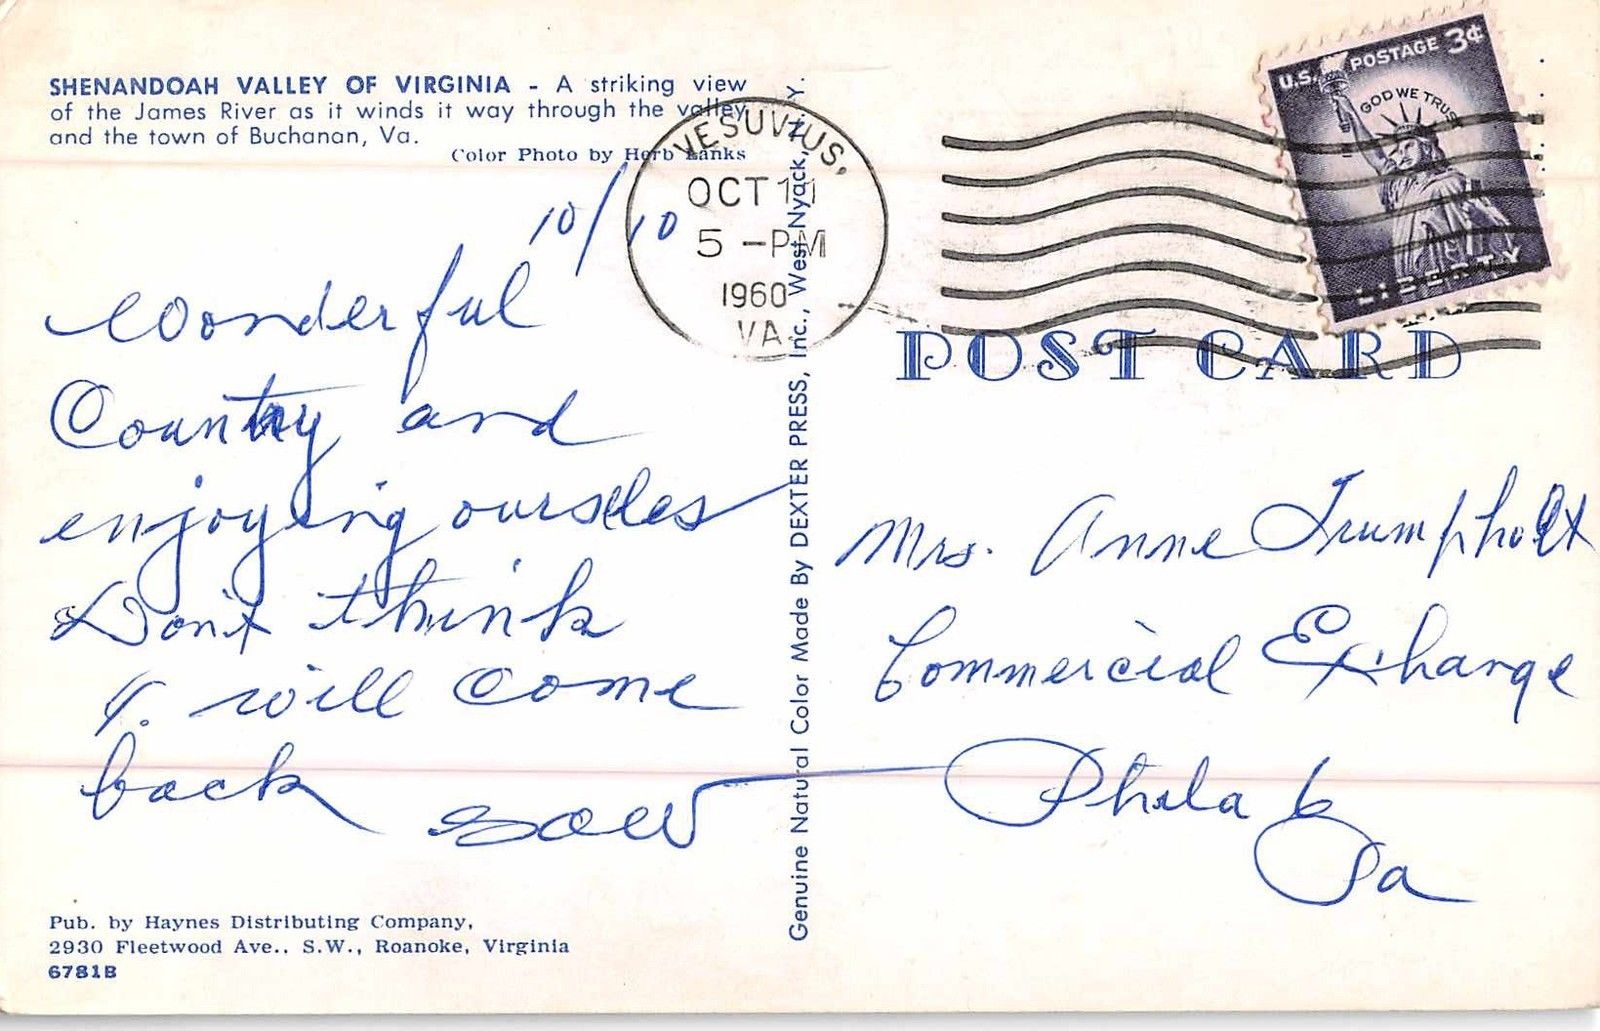 SHENANDOAH VALLEY OF VIRGINIA - A striking view
of the James River as it winds it way through the valley
and the town of Buchanan, Va.
Color Photo by Herb Lanks
10/10
Wonderful
Country and
enjoying ourselves
Don't think
I. will come
back
Pub. by Haynes Distributing Company,
2930 Fleetwood Ave., S.W., Roanoke, Virginia
6781B
Genuine Natural Color Made By DEXTER PRESS, Inc., West Nyack, N. Y.
VESUVIUS,
OCT 11
5 -PM
1960
VA
U.S. POSTAGE 3¢
GOD WE TRUST
LIBERTY
POST CARD
Mrs. Anne Trumpholt
Commercial Exchange
Phila 6
Pa